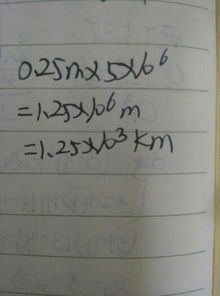 0.25m×5×10⁶
=1.25×10⁶ m
=1.25×10³ Km